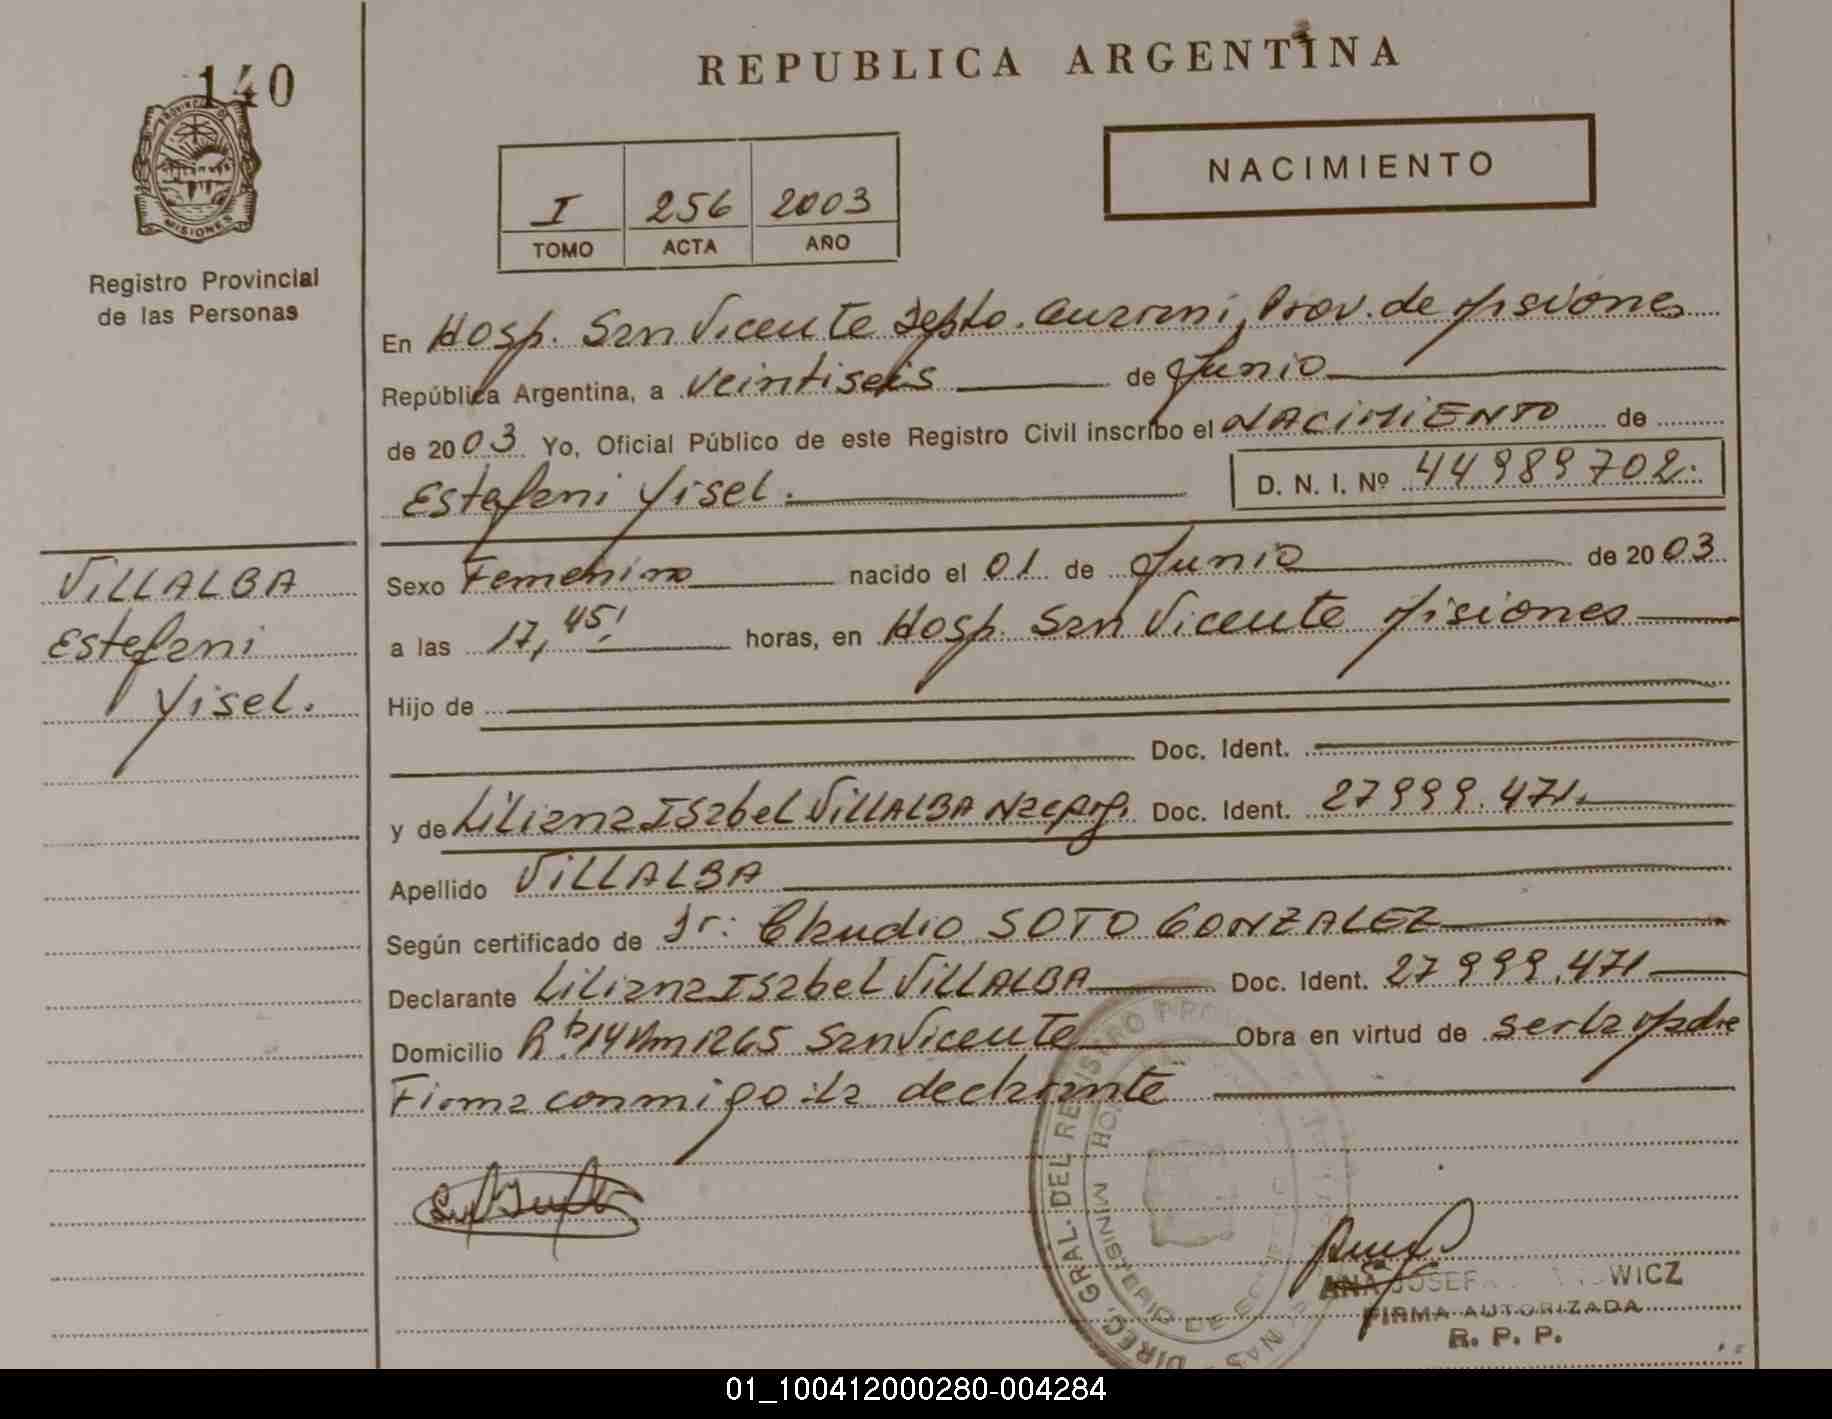 140
REPUBLICA ARGENTINA
NACIMIENTO
I 256 2003
TOMO ACTA AÑO
PROVINCIA DE MISIONES
Registro Provincial
de las Personas
En Hosp. San Vicente Depto. Guarani, Prov. de Misiones
República Argentina, a veintiseis de Junio
de 2003 Yo, Oficial Público de este Registro Civil inscribo el NACIMIENTO de
Estefani Yisel. D. N. I. Nº 44989702.
VILLALBA
Estefani
Yisel.
Sexo Femenino nacido el 01 de Junio de 2003
a las 17,45' horas, en Hosp. San Vicente Misiones
Hijo de
Doc. Ident.
y de Liliana Isabel VILLALBA Doc. Ident. 27999.471.
Apellido VILLALBA
Según certificado de Dr: Claudio SOTO GONZALEZ
Declarante Liliana Isabel VILLALBA Doc. Ident. 27999.471
Domicilio 14 Km 1265 San Vicente Obra en virtud de ser la Madre
Firma conmigo: la declarante
DIREC. GRAL. DEL REGISTRO
MINISTERIO DE
ANA WICZ
FIRMA AUTORIZADA
R. P. P.
01_100412000280-004284